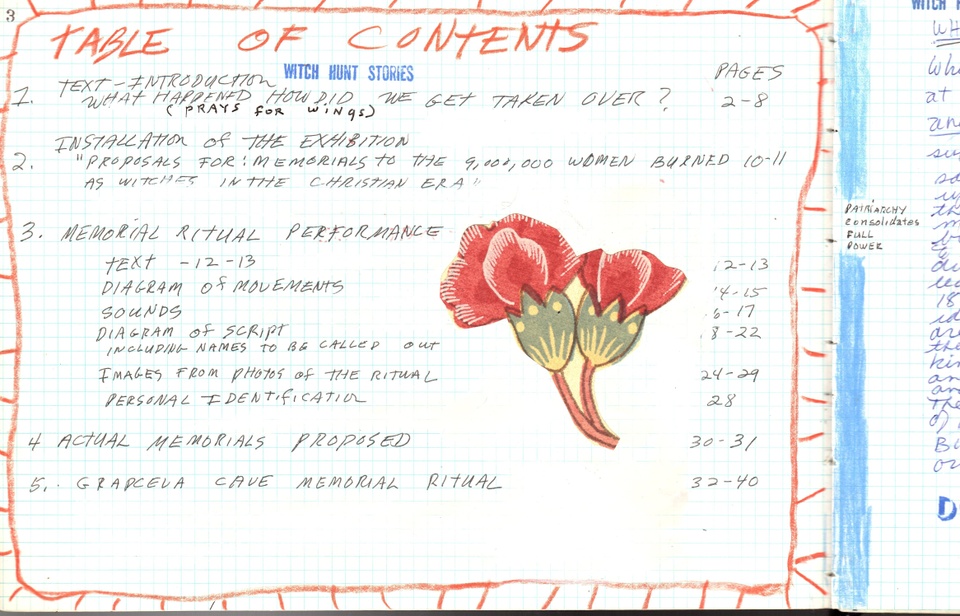 3
TABLE OF CONTENTS
WITCH HUNT STORIES
PAGES
TEXT - INTRODUCTION
1. WHAT HAPPENED HOW DID WE GET TAKEN OVER? 2-8
(PRAYS FOR WINGS)
INSTALLATION of THE EXHIBITION
2. "PROPOSALS FOR: MEMORIALS TO THE 9,000,000 WOMEN BURNED 10-11
AS WITCHES IN THE CHRISTIAN ERA"
3. MEMORIAL RITUAL PERFORMANCE
TEXT - 12-13 12-13
DIAGRAM of MOVEMENTS 14-15
SOUNDS 6-17
DIAGRAM of SCRIPT 8-22
INCLUDING NAMES TO BE CALLED OUT
IMAGES FROM PHOTOS of THE RITUAL 24-29
PERSONAL IDENTIFICATION 28
4 ACTUAL MEMORIALS PROPOSED 30-31
5. GRAPCEVA CAVE MEMORIAL RITUAL 32-40
PATRIARCHY
consolidates
FULL
POWER
WITCH
at